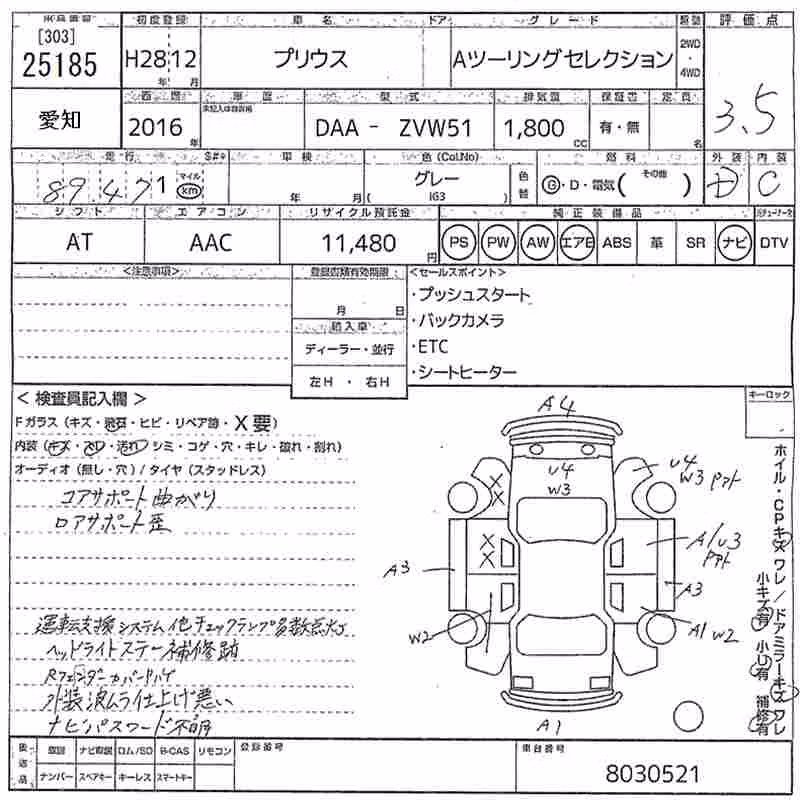 出品番号 初度登録 車名 ドア グレード 駆動 評価点
[303]
25185 H28 12 プリウス Aツーリングセレクション 2WD ・ 4WD 3.5
年 月
西暦 車歴 型式 排気量 保証書 定員
愛知 2016 年 DAA - ZVW51 1,800 CC 有・無 名
走行 車検 色(Col.No) 燃料 外装 内装
89,471 マイル km 年 月 グレー ( 1G3 ) 色替 G・D・電気( その他 ) D C
シフト エアコン リサイクル預託金 純正装備品
AT AAC 11,480 円 PS PW AW エアB ABS 革 SR ナビ DTV
<注意事項> 登録店舗有効期限 <セールスポイント>
月 日 ・プッシュスタート
輸入車 ・バックカメラ
ディーラー・並行 ・ETC
左H ・ 右H ・シートヒーター
< 検査員記入欄 > キーロック
Fガラス (キズ・飛石・ヒビ・リペア跡・X要)
内装 (キズ・スレ・汚れ・シミ・コゲ・穴・キレ・破れ・割れ)
オーディオ (無し・穴) / タイヤ (スタッドレス)
コアサポート曲がり
ロアサポート歪
運転支援システム他チェックランプ多数点灯
ヘッドライトステー補修跡
Rフェンダーカバードバイ
外装波ムラ仕上げ悪い
ナビパスワード不明
A4
U4
W3
U4
W3 ppt
X
X
X
X
A/U3
ppt
A3
A3
W2
A1 W2
A1
ホイル・CPキズ ワレ / ドアミラーキズ ワレ
小キズ有 小U有 補修有
後送品 取説 ナビ取説 ロム/SD B-CAS リモコン 登録番号 車台番号
ナンバー スペアキー キーレス スマートキー 8030521